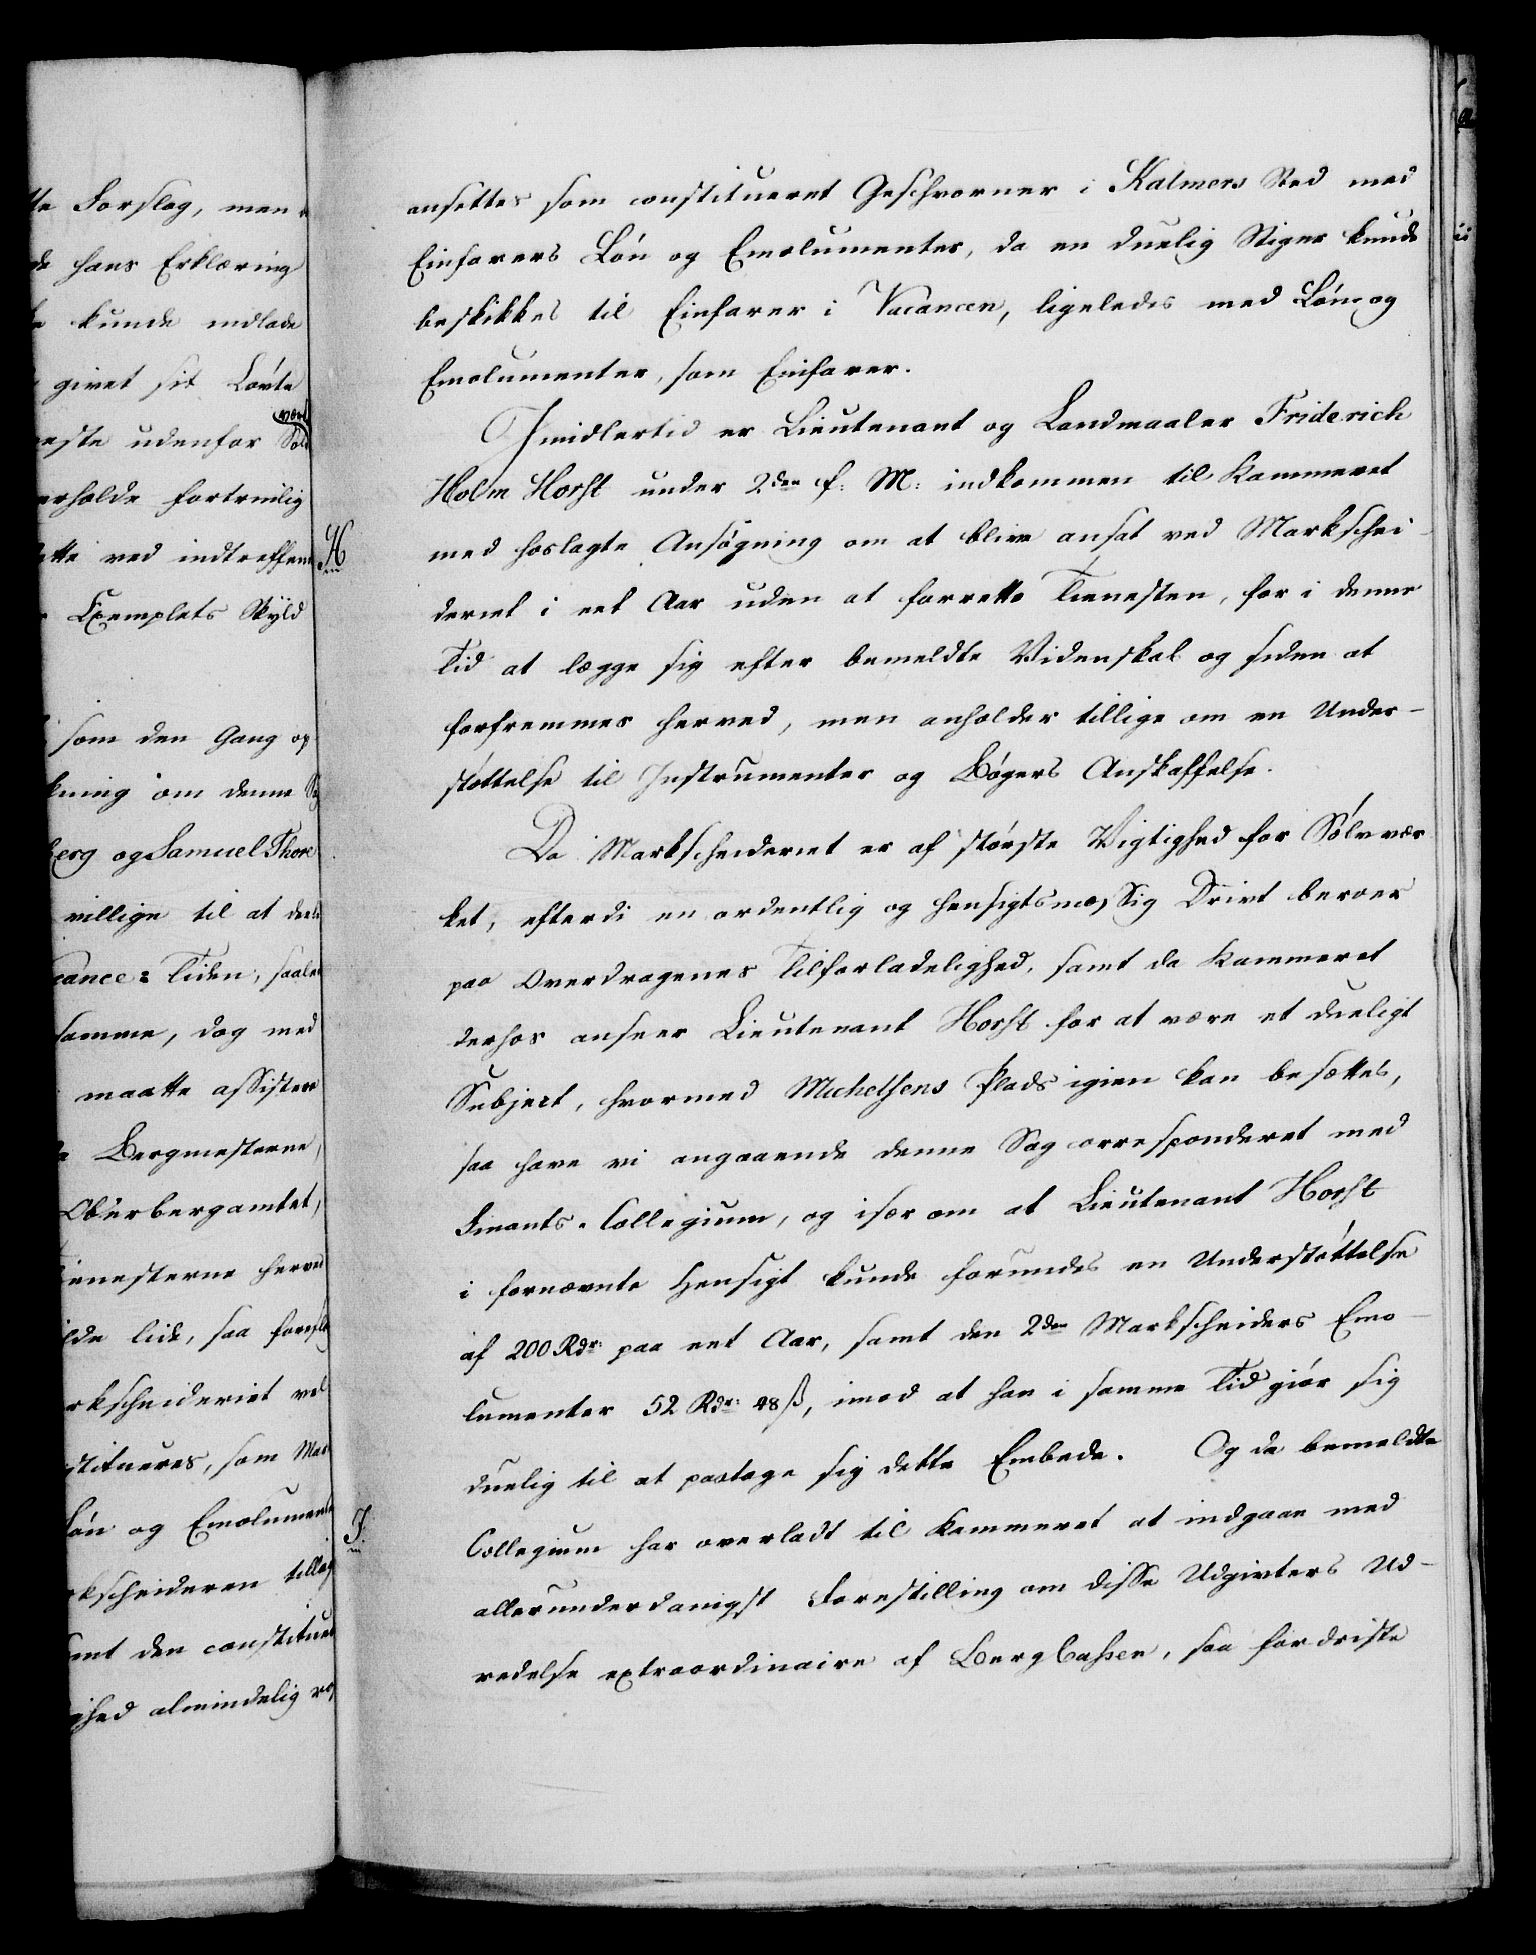 tte Forslag, men
de hans Erklæring
kunde indlade
givet sit Løvte
neste udenfor Sölv
værk
erholde fortrinlig
ette ved indtreffen
Exemplets Skyld
som den Gang op
kning om denne Sag
berg og Samuel Thore
villige til at deele
cance-Tiden, saale
samme, dog med
maatte assistere
Bergmesterne,
Oberbergamtet,
ienesterne herved
ilde lide, saa foresl
rkscheideriet vel
stitueres, som Mar
Løn og Emolumente
rkscheideren tillag
amt den constituer
ighed almindelig ro
ansættes som constitueret Geschworner i Kalmers Sted med
Einfarers Løn og Emolumenter, da en duelig Stiger kunde
beskikkes til Einfarer i Vacancen, ligeledes med Løn og
Emolumenter, som Einfarer.
Imidlertid er Lieutenant og Landmaaler Friderich
Holm Horst under 2den f: M: indkommen til Kammeret
H
med hoslagte Ansøgning om at blive ansat ved Markschei-
deriet i eet Aar uden at forrette Tienesten, for i denne
Tid at lægge sig efter bemeldte Videnskab og siden at
forfremmes herved, men anholder tillige om en Under-
støttelse til Instrumenter og Bøgers Anskaffelse.
Da Markscheideriet er af største Vigtighed for Sølvvær
ket, efterdi en ordentlig og hensigtsmæssig Drivt beroer
paa Overdragenes Tilforladelighed, samt da Kammeret
derhos anseer Lieutenant Horst for at være et dueligt
Subject, hvormed Michelsens Plads igien kan besættes,
saa have vi angaaende denne Sag corresponderet med
Finants-Collegium, og især om at Lieutenant Horst
i fornævnte Hensigt kunde forundes en Understøttelse
af 200 Rdr: paa eet Aar, samt den 2den Markscheiders Emo-
lumenter 52 Rdr: 48 ß, imod at han i samme Tid giør sig
duelig til at paatage sig dette Embede. Og da bemeldte
I
Collegium har overladt til Kammeret at indgaae med
allerunderdanigst Forestilling om disse Udgivters Ud-
redelse extraordinaire af BergCassen, saa fordriste